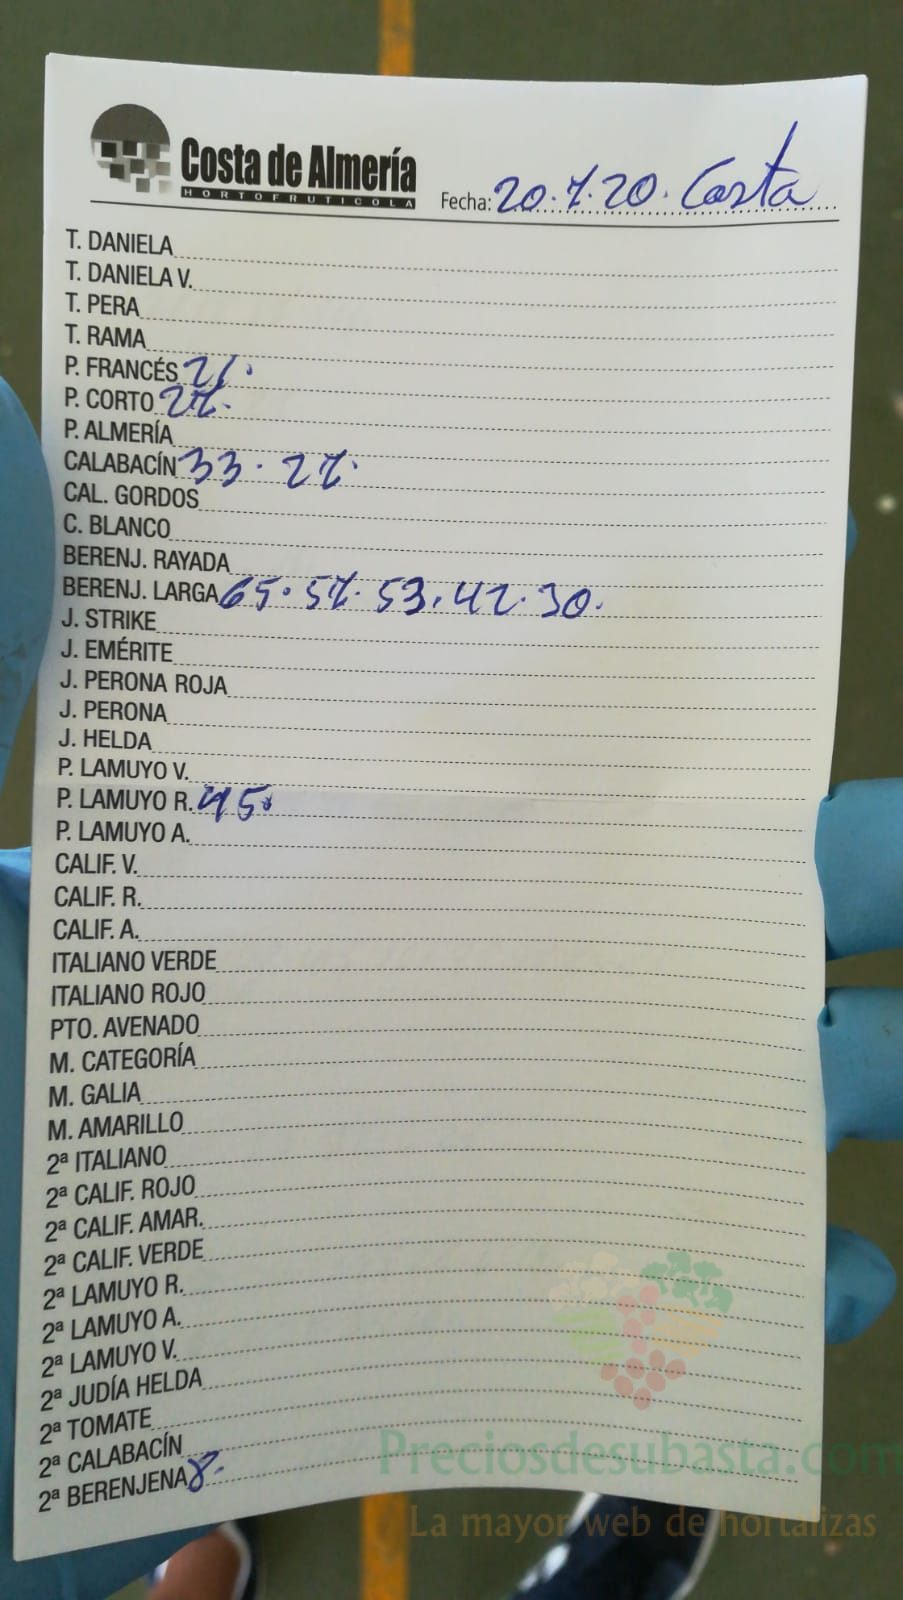 Costa de Almería
HORTOFRUTICOLA
Fecha: 20.7.20. Costa
T. DANIELA
T. DANIELA V.
T. PERA
T. RAMA
P. FRANCÉS 21.
P. CORTO 27.
P. ALMERÍA
CALABACÍN 33. 27.
CAL. GORDOS
C. BLANCO
BERENJ. RAYADA
BERENJ. LARGA 65. 57. 53. 42. 30.
J. STRIKE
J. EMÉRITE
J. PERONA ROJA
J. PERONA
J. HELDA
P. LAMUYO V.
P. LAMUYO R. 45.
P. LAMUYO A.
CALIF. V.
CALIF. R.
CALIF. A.
ITALIANO VERDE
ITALIANO ROJO
PTO. AVENADO
M. CATEGORÍA
M. GALIA
M. AMARILLO
2ª ITALIANO
2ª CALIF. ROJO
2ª CALIF. AMAR.
2ª CALIF. VERDE
2ª LAMUYO R.
2ª LAMUYO A.
2ª LAMUYO V.
2ª JUDÍA HELDA
2ª TOMATE
2ª CALABACÍN
2ª BERENJENA 8.
Preciosdesubasta.com
La mayor web de hortalizas